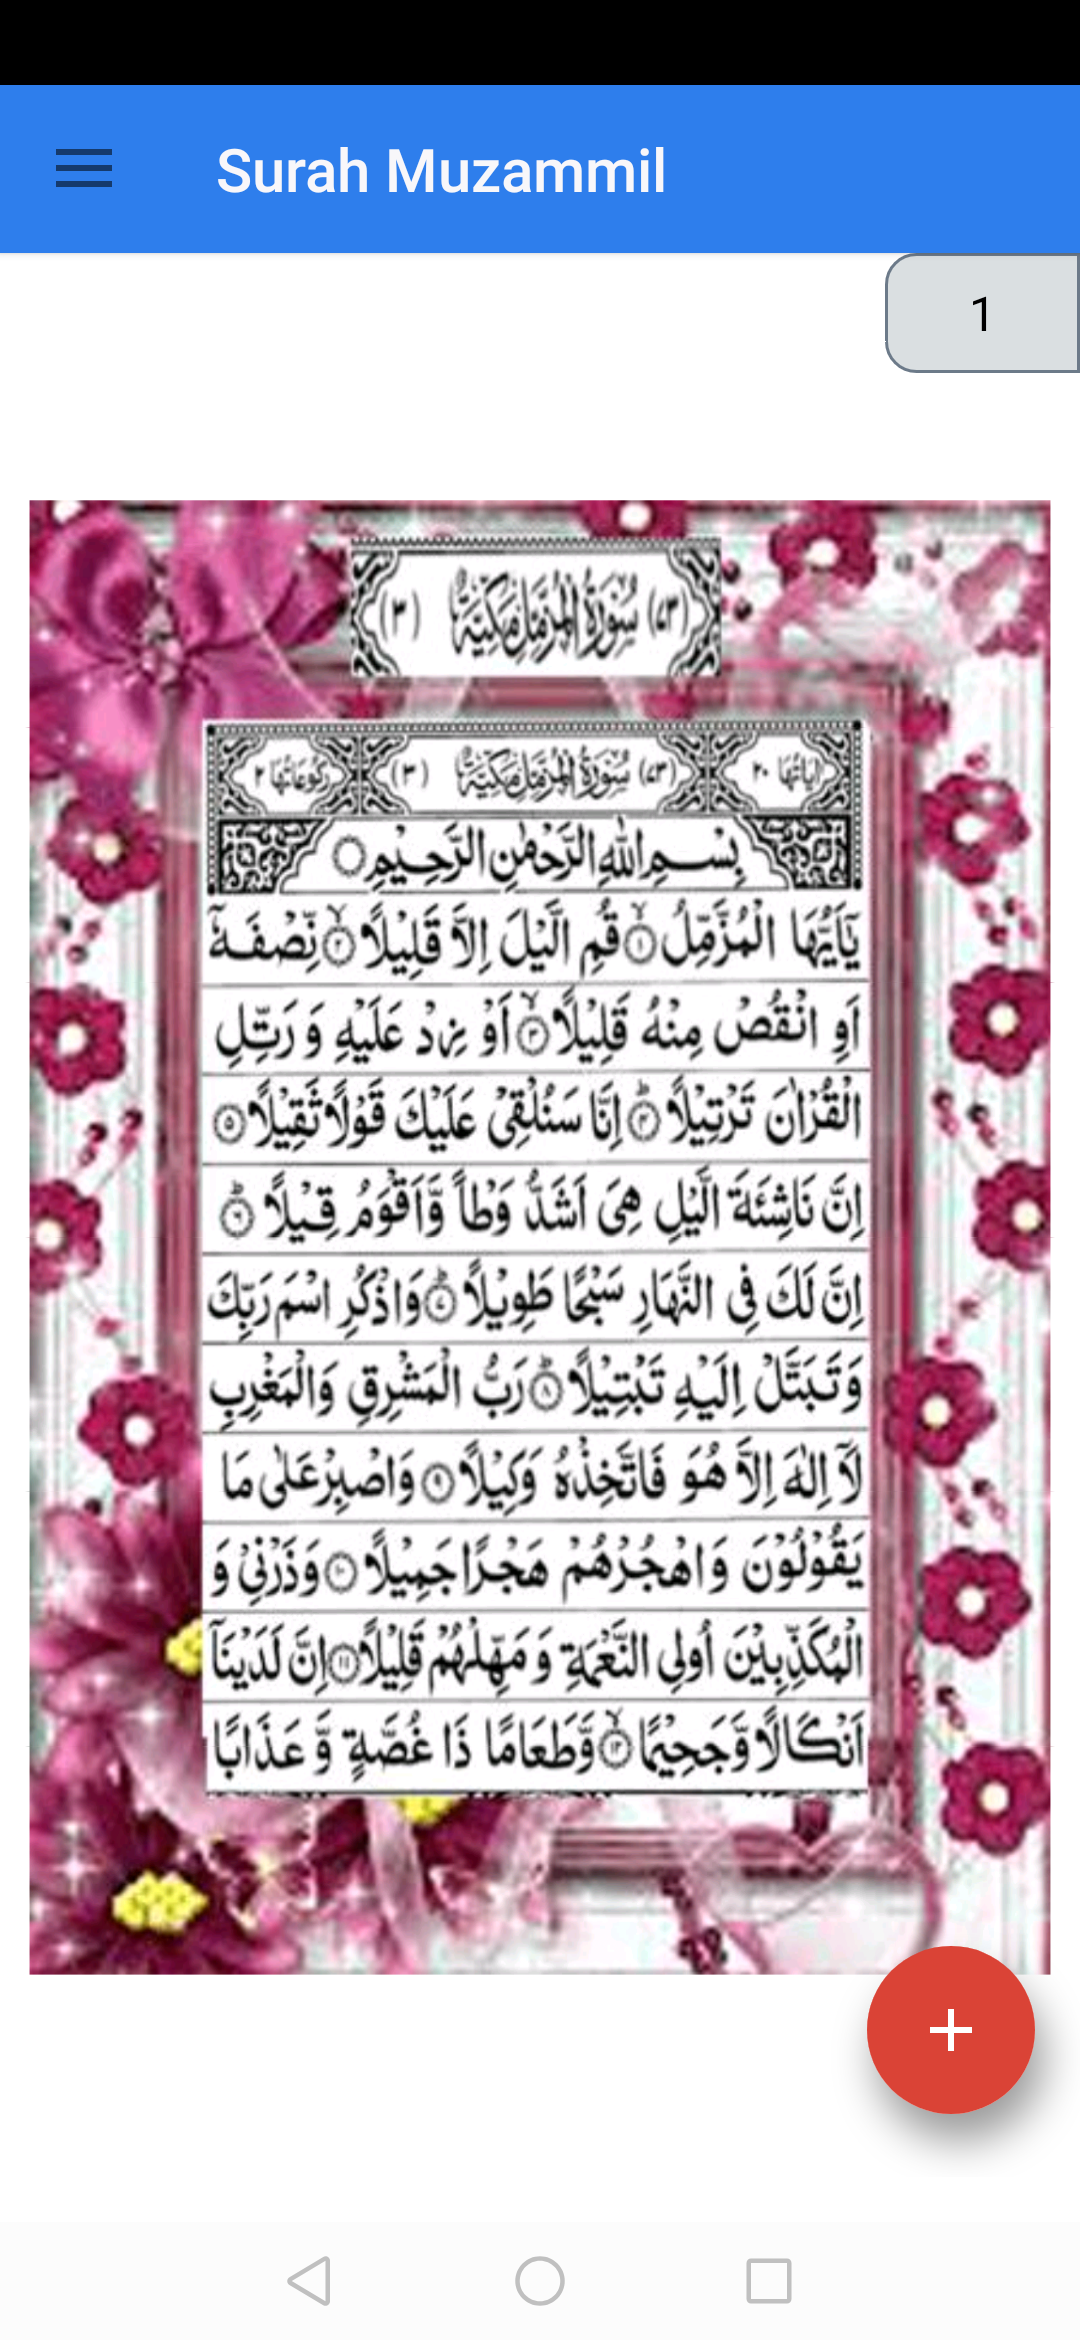 Surah Muzammil
1
(٧٣) سُوْرَةُ الْمُزَّمِّلِ مَكِّيَّةٌ (٣)
اٰيَاتُهَا ٢٠ (٧٣) سُوْرَةُ الْمُزَّمِّلِ مَكِّيَّةٌ (٣) رُكُوْعَاتُهَا ٢
بِسْمِ اللّٰهِ الرَّحْمٰنِ الرَّحِيْمِ ۝
يٰۤاَيُّهَا الْمُزَّمِّلُ ۙ﴿١﴾ قُمِ الَّيْلَ اِلَّا قَلِيْلًا ۙ﴿٢﴾ نِّصْفَهٗۤ
اَوِ انْقُصْ مِنْهُ قَلِيْلًا ۙ﴿٣﴾ اَوْ زِدْ عَلَيْهِ وَ رَتِّلِ
الْقُرْاٰنَ تَرْتِيْلًا ؕ﴿٤﴾ اِنَّا سَنُلْقِيْ عَلَيْكَ قَوْلًا ثَقِيْلًا ﴿٥﴾
اِنَّ نَاشِئَةَ الَّيْلِ هِيَ اَشَدُّ وَطْاً وَّاَقْوَمُ قِيْلًا ؕ﴿٦﴾
اِنَّ لَكَ فِي النَّهَارِ سَبْحًا طَوِيْلًا ؕ﴿٧﴾ وَاذْكُرِ اسْمَ رَبِّكَ
وَتَبَتَّلْ اِلَيْهِ تَبْتِيْلًا ؕ﴿٨﴾ رَبُّ الْمَشْرِقِ وَالْمَغْرِبِ
لَاۤ اِلٰهَ اِلَّا هُوَ فَاتَّخِذْهُ وَكِيْلًا ﴿٩﴾ وَاصْبِرْ عَلٰى مَا
يَقُوْلُوْنَ وَاهْجُرْهُمْ هَجْرًا جَمِيْلًا ﴿١٠﴾ وَذَرْنِيْ وَ
الْمُكَذِّبِيْنَ اُولِي النَّعْمَةِ وَ مَهِّلْهُمْ قَلِيْلًا ﴿١١﴾ اِنَّ لَدَيْنَاۤ
اَنْكَالًا وَّجَحِيْمًا ۙ﴿١٢﴾ وَّطَعَامًا ذَا غُصَّةٍ وَّ عَذَابًا